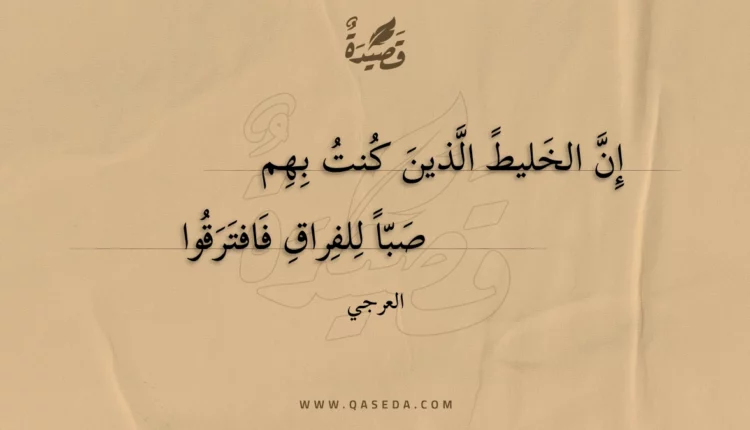 قَصِيدَةٌ
إِنَّ الخَليطً الَّذينَ كُنتُ بِهِم
صَبّاً لِلفِراقِ فَافتَرَقُوا
العرجي
WWW.QASEDA.COM